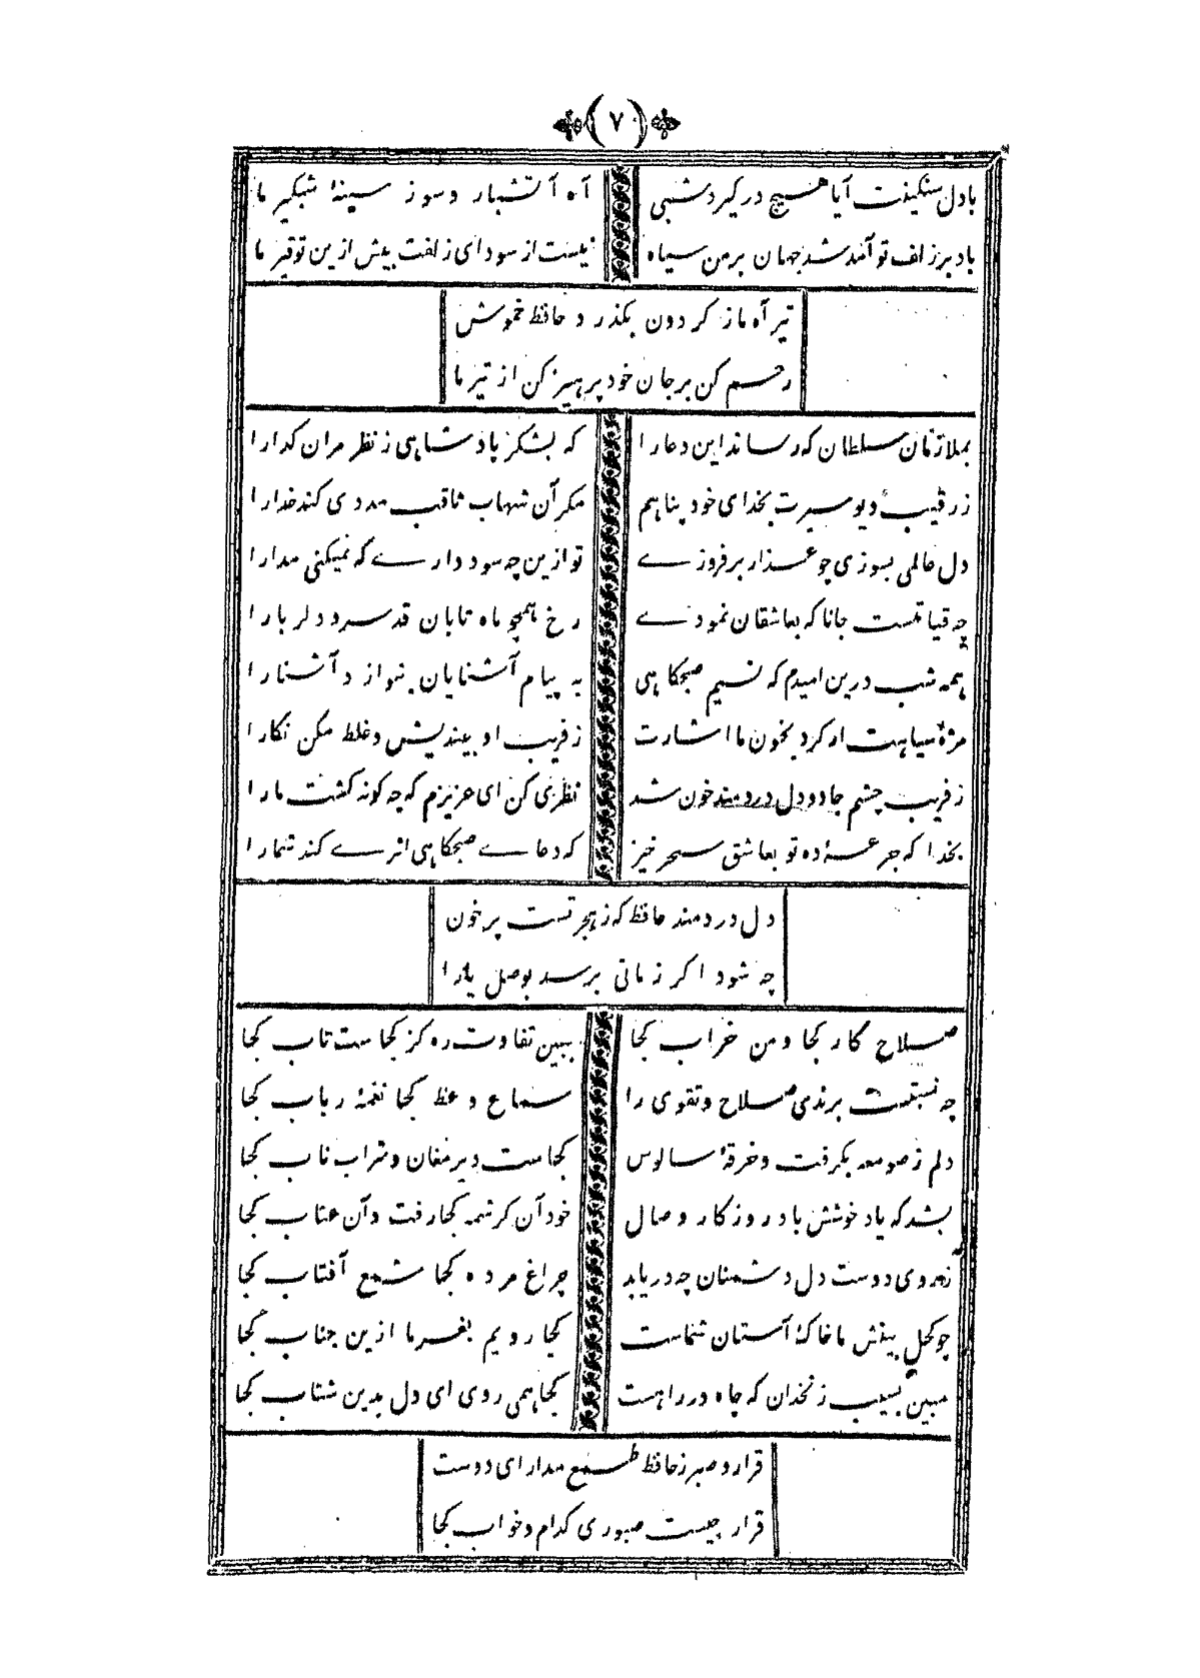 (۷)
بادل سنگینت آیا هیچ درگیرد شبی آه آتشبار و سوز سینهٔ شبگیر ما
باد بر زلف تو آمد شد جهان بر من سیاه نیست از سودای زلفت بیش ازین توقیر ما
تیر آه ما ز کردون بکذرد حافظ خموش
رحم کن بر جان خود پرهیز کن از تیر ما
بملازمان سلطان که رساند این دعا را که بشکر پادشاهی ز نظر مران کدا را
ز رقیب دیو سیرت بخدای خود پناهم مکر آن شهاب ثاقب مددی کند خدا را
دل عالمی بسوزی چو عذار برفروزے تو ازین چه سود دارے که نمیکنی مدارا
چه قیامتست جانا که بعاشقان نمودے رخ همچو ماه تابان قد سرو دلربا را
همه شب درین امیدم که نسیم صبحکاهی به پیام آشنایان بنوازد آشنا را
مژهٔ سیاهت ار کرد بخون ما اشارت ز فریب او بیندیش و غلط مکن نکارا
ز فریب چشم جادو دل دردمند خون شد نظری کن ای عزیزم که چه کونه کشت ما را
بخدا که جرعهٔ ده تو بعاشق سحر خیز که دعاے صبحکاهی اثرے کند شما را
دل دردمند حافظ که ز هجر تست پر خون
چه شود اکر زمانی برسد بوصل یارا
صلاح کار کجا و من خراب کجا ببین تفاوت ره کز کجاست تاب کجا
چه نسبتست برندی صلاح و تقوی را سماع وعظ کجا نغمهٔ رباب کجا
دلم ز صومعه بکرفت و خرقهٔ سالوس کجاست دیر مغان و شراب ناب کجا
بشد که یاد خوشش باد روزکار وصال خود آن کرشمه کجا رفت و آن عتاب کجا
ز روی دوست دل دشمنان چه دریابد چراغ مرده کجا شمع آفتاب کجا
چو کحل بینش ما خاک آستان شماست کجا رویم بفرما ازین جناب کجا
مبین بسیب زنخدان که چاه در راهست کجا همی روی ای دل بدین شتاب کجا
قرار و صبر ز حافظ طمع مدار ای دوست
قرار چیست صبوری کدام و خواب کجا